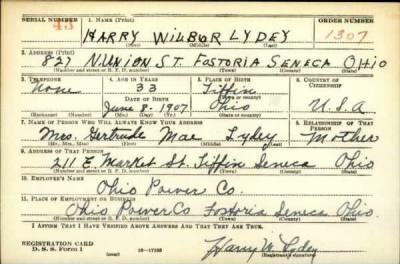 SERIAL NUMBER 1. NAME (Print) ORDER NUMBER
43 HARRY WILBUR LYDEY 1307
(First) (Middle) (Last)
2. ADDRESS (Print)
821 N. UNION ST. FOSTORIA SENECA OHIO
(Number and street or R. F. D. number) (Town) (County) (State)
3. TELEPHONE 4. AGE IN YEARS 5. PLACE OF BIRTH 6. COUNTRY OF CITIZENSHIP
None 33 Tiffin
DATE OF BIRTH (Town or county)
June 8. 1907 Ohio U.S.A
(Mo.) (Day) (Yr.) (State or country)
7. NAME OF PERSON WHO WILL ALWAYS KNOW YOUR ADDRESS 8. RELATIONSHIP OF THAT PERSON
Mrs. Gertrude Mae Lydey Mother
(Mr., Mrs., Miss) (First) (Middle) (Last)
9. ADDRESS OF THAT PERSON
211 E. Market St. Tiffin Seneca Ohio
(Number and street or R. F. D. number) (Town) (County) (State)
10. EMPLOYER'S NAME
Ohio Power Co.
11. PLACE OF EMPLOYMENT OR BUSINESS
Ohio Power Co Fostoria Seneca Ohio.
(Number and street or R. F. D. number) (Town) (County) (State)
I AFFIRM THAT I HAVE VERIFIED ABOVE ANSWERS AND THAT THEY ARE TRUE.
REGISTRATION CARD
D. S. S. Form 1 16-17105 Harry W. Lydey